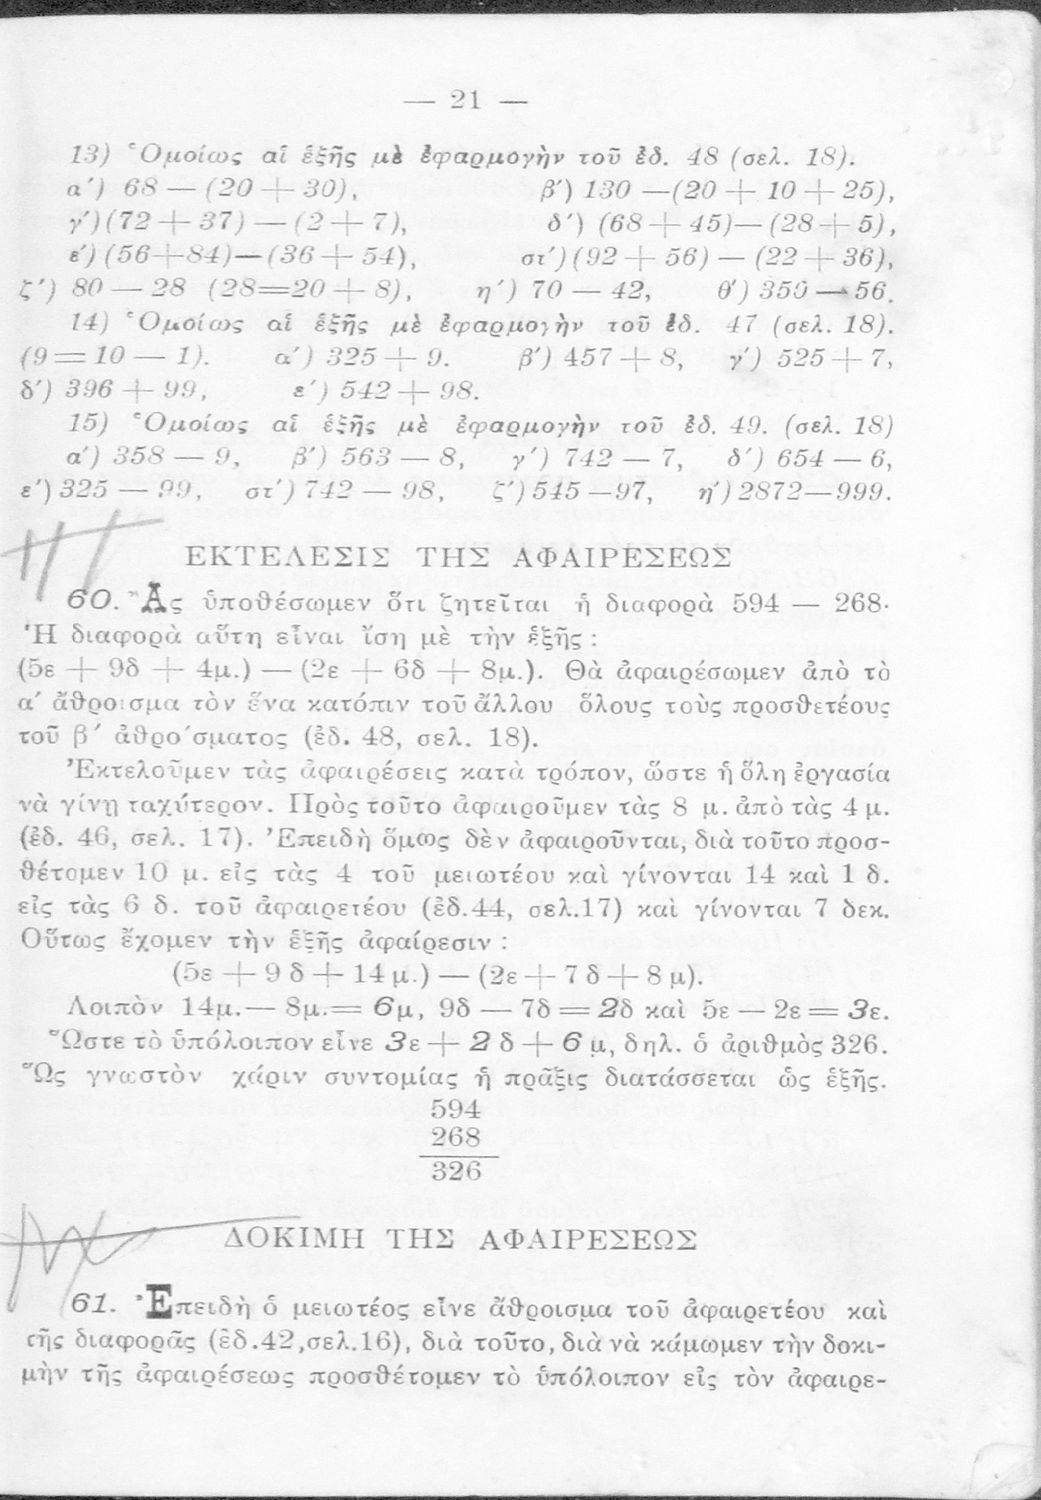 — 21 —
13) Ὁμοίως αἱ ἑξῆς μὲ ἐφαρμογὴν τοῦ ἐδ. 48 (σελ. 18).
α΄) 68 — (20 + 30), β΄) 130 —(20 + 10 + 25),
γ΄)(72 + 37) — (2 + 7), δ΄) (68 + 45)— (28 + 5),
ε΄) (56+84)—(36 + 54), στ΄)(92 + 56) — (22 + 36),
ζ΄) 80 — 28 (28=20 + 8), η΄) 70 — 42, θ΄) 350 — 56.
14) Ὁμοίως αἱ ἑξῆς μὲ ἐφαρμογὴν τοῦ ἐδ. 47 (σελ. 18).
(9 = 10 — 1). α΄) 325 + 9. β΄) 457 + 8, γ΄) 525 + 7,
δ΄) 396 + 99, ε΄) 542 + 98.
15) Ὁμοίως αἱ ἑξῆς μὲ ἐφαρμογὴν τοῦ ἐδ. 49. (σελ. 18)
α΄) 358 — 9, β΄) 563 — 8, γ΄) 742 — 7, δ΄) 654 — 6,
ε΄) 325 — 99, στ΄) 742 — 98, ζ΄) 545 —97, η΄) 2872—999.
ΕΚΤΕΛΕΣΙΣ ΤΗΣ ΑΦΑΙΡΕΣΕΩΣ
60. Ἂς ὑποθέσωμεν ὅτι ζητεῖται ἡ διαφορὰ 594 — 268·
Ἡ διαφορὰ αὕτη εἶναι ἴση μὲ τὴν ἑξῆς :
(5ε + 9δ + 4μ.) — (2ε + 6δ + 8μ.). Θὰ ἀφαιρέσωμεν ἀπὸ τὸ
α΄ ἄθροισμα τὸν ἕνα κατόπιν τοῦ ἄλλου ὅλους τοὺς προσθετέους
τοῦ β΄ ἀθροίσματος (ἐδ. 48, σελ. 18).
Ἐκτελοῦμεν τὰς ἀφαιρέσεις κατὰ τρόπον, ὥστε ἡ ὅλη ἐργασία
νὰ γίνῃ ταχύτερον. Πρὸς τοῦτο ἀφαιροῦμεν τὰς 8 μ. ἀπὸ τὰς 4 μ.
(ἐδ. 46, σελ. 17). Ἐπειδὴ ὅμως δὲν ἀφαιροῦνται, διὰ τοῦτο προσ-
θέτομεν 10 μ. εἰς τὰς 4 τοῦ μειωτέου καὶ γίνονται 14 καὶ 1 δ.
εἰς τὰς 6 δ. τοῦ ἀφαιρετέου (ἐδ.44, σελ.17) καὶ γίνονται 7 δεκ.
Οὕτως ἔχομεν τὴν ἑξῆς ἀφαίρεσιν :
(5ε + 9 δ + 14 μ.) — (2ε + 7 δ + 8 μ).
Λοιπὸν 14μ.— 8μ.= 6μ, 9δ — 7δ = 2δ καὶ 5ε — 2ε = 3ε.
Ὥστε τὸ ὑπόλοιπον εἶνε 3ε + 2 δ + 6 μ, δηλ. ὁ ἀριθμὸς 326.
Ὡς γνωστὸν χάριν συντομίας ἡ πρᾶξις διατάσσεται ὡς ἑξῆς.
594
268
326
ΔΟΚΙΜΗ ΤΗΣ ΑΦΑΙΡΕΣΕΩΣ
61. Ἐπειδὴ ὁ μειωτέος εἶνε ἄθροισμα τοῦ ἀφαιρετέου καὶ
τῆς διαφορᾶς (ἐδ.42,σελ.16), διὰ τοῦτο, διὰ νὰ κάμωμεν τὴν δοκι-
μὴν τῆς ἀφαιρέσεως προσθέτομεν τὸ ὑπόλοιπον εἰς τὸν ἀφαιρε-